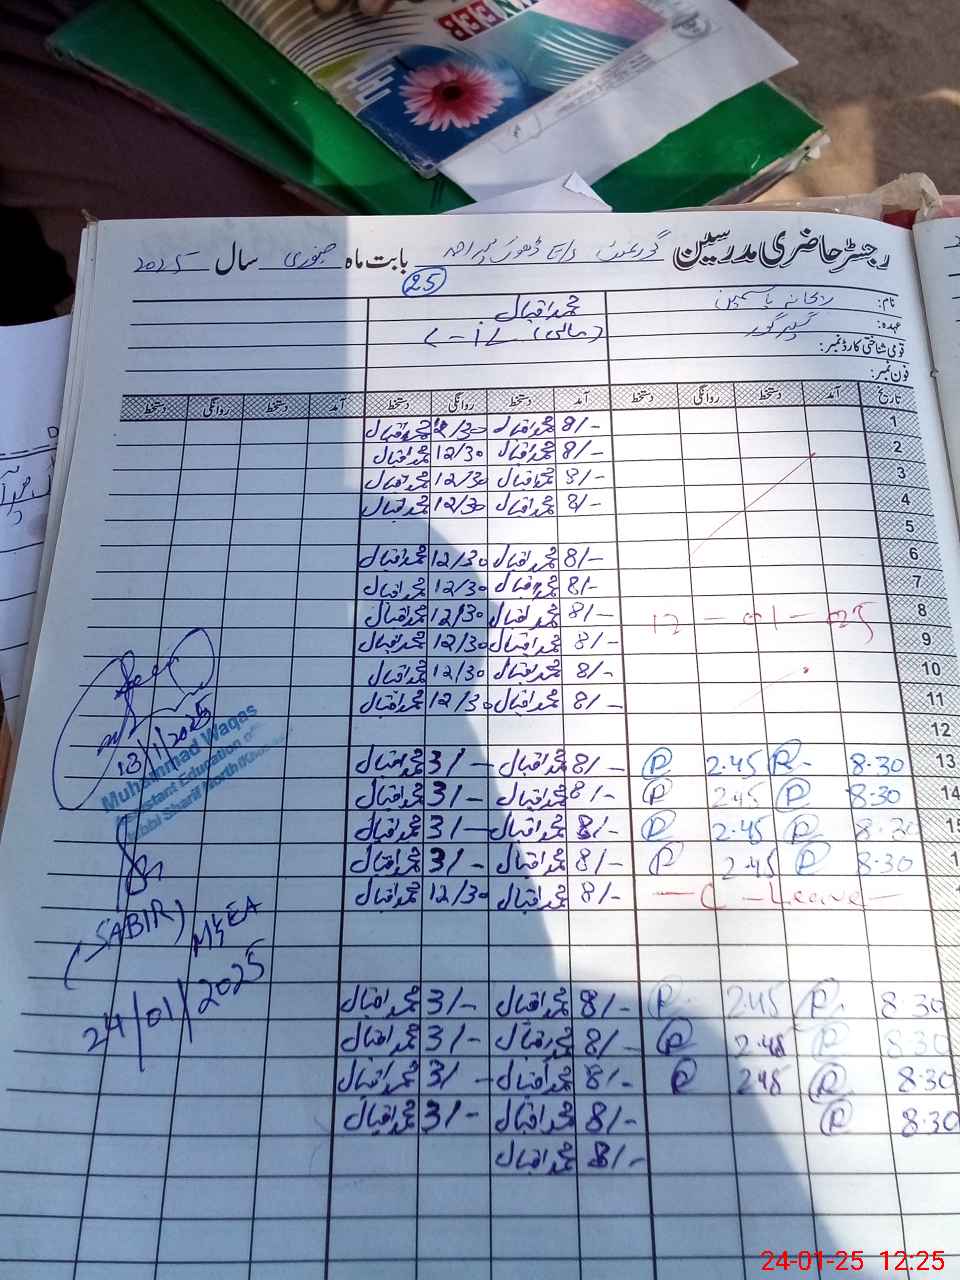 رجسٹر حاضری مدرسین گورنمنٹ بابت ماہ جنوری سال 2025
25
نام: ریحانہ یاسمین محمد اقبال
عہدہ: (مالی)
قومی شناختی کارڈ نمبر:
فون نمبر:
تاریخ آمد دستخط روانگی دستخط آمد دستخط روانگی دستخط آمد دستخط روانگی دستخط
1 8/- محمد اقبال 12/30 محمد اقبال
2 8/- محمد اقبال 12/30 محمد اقبال
3 8/- محمد اقبال 12/30 محمد اقبال
4 8/- محمد اقبال 12/30 محمد اقبال
5
6 8/- محمد اقبال 12/30 محمد اقبال
7 8/- محمد اقبال 12/30 محمد اقبال
8 12-01-025 8/- محمد اقبال 12/30 محمد اقبال
9 8/- محمد اقبال 12/30 محمد اقبال
10 8/- محمد اقبال 12/30 محمد اقبال
11 8/- محمد اقبال 12/30 محمد اقبال
12
13 8.30 R 2.45 R 8/- محمد اقبال 3/- محمد اقبال
14 8.30 R 2.45 R 8/- محمد اقبال 3/- محمد اقبال
15 8.30 R 2.45 R 8/- محمد اقبال 3/- محمد اقبال
8.30 R 2.45 R 8/- محمد اقبال 3/- محمد اقبال
C-Leave 8/- محمد اقبال 12/30 محمد اقبال
8.30 R 2.45 R 8/- محمد اقبال 3/- محمد اقبال
8.30 R 2.45 R 8/- محمد اقبال 3/- محمد اقبال
8.30 R 2.45 R 8/- محمد اقبال 3/- محمد اقبال
8.30 R 8/- محمد اقبال 3/- محمد اقبال
8/- محمد اقبال
13/1/2025
Muhammad Waqas
Assistant Education
(SABIR) M&EA
24/01/2025
24-01-25 12:25